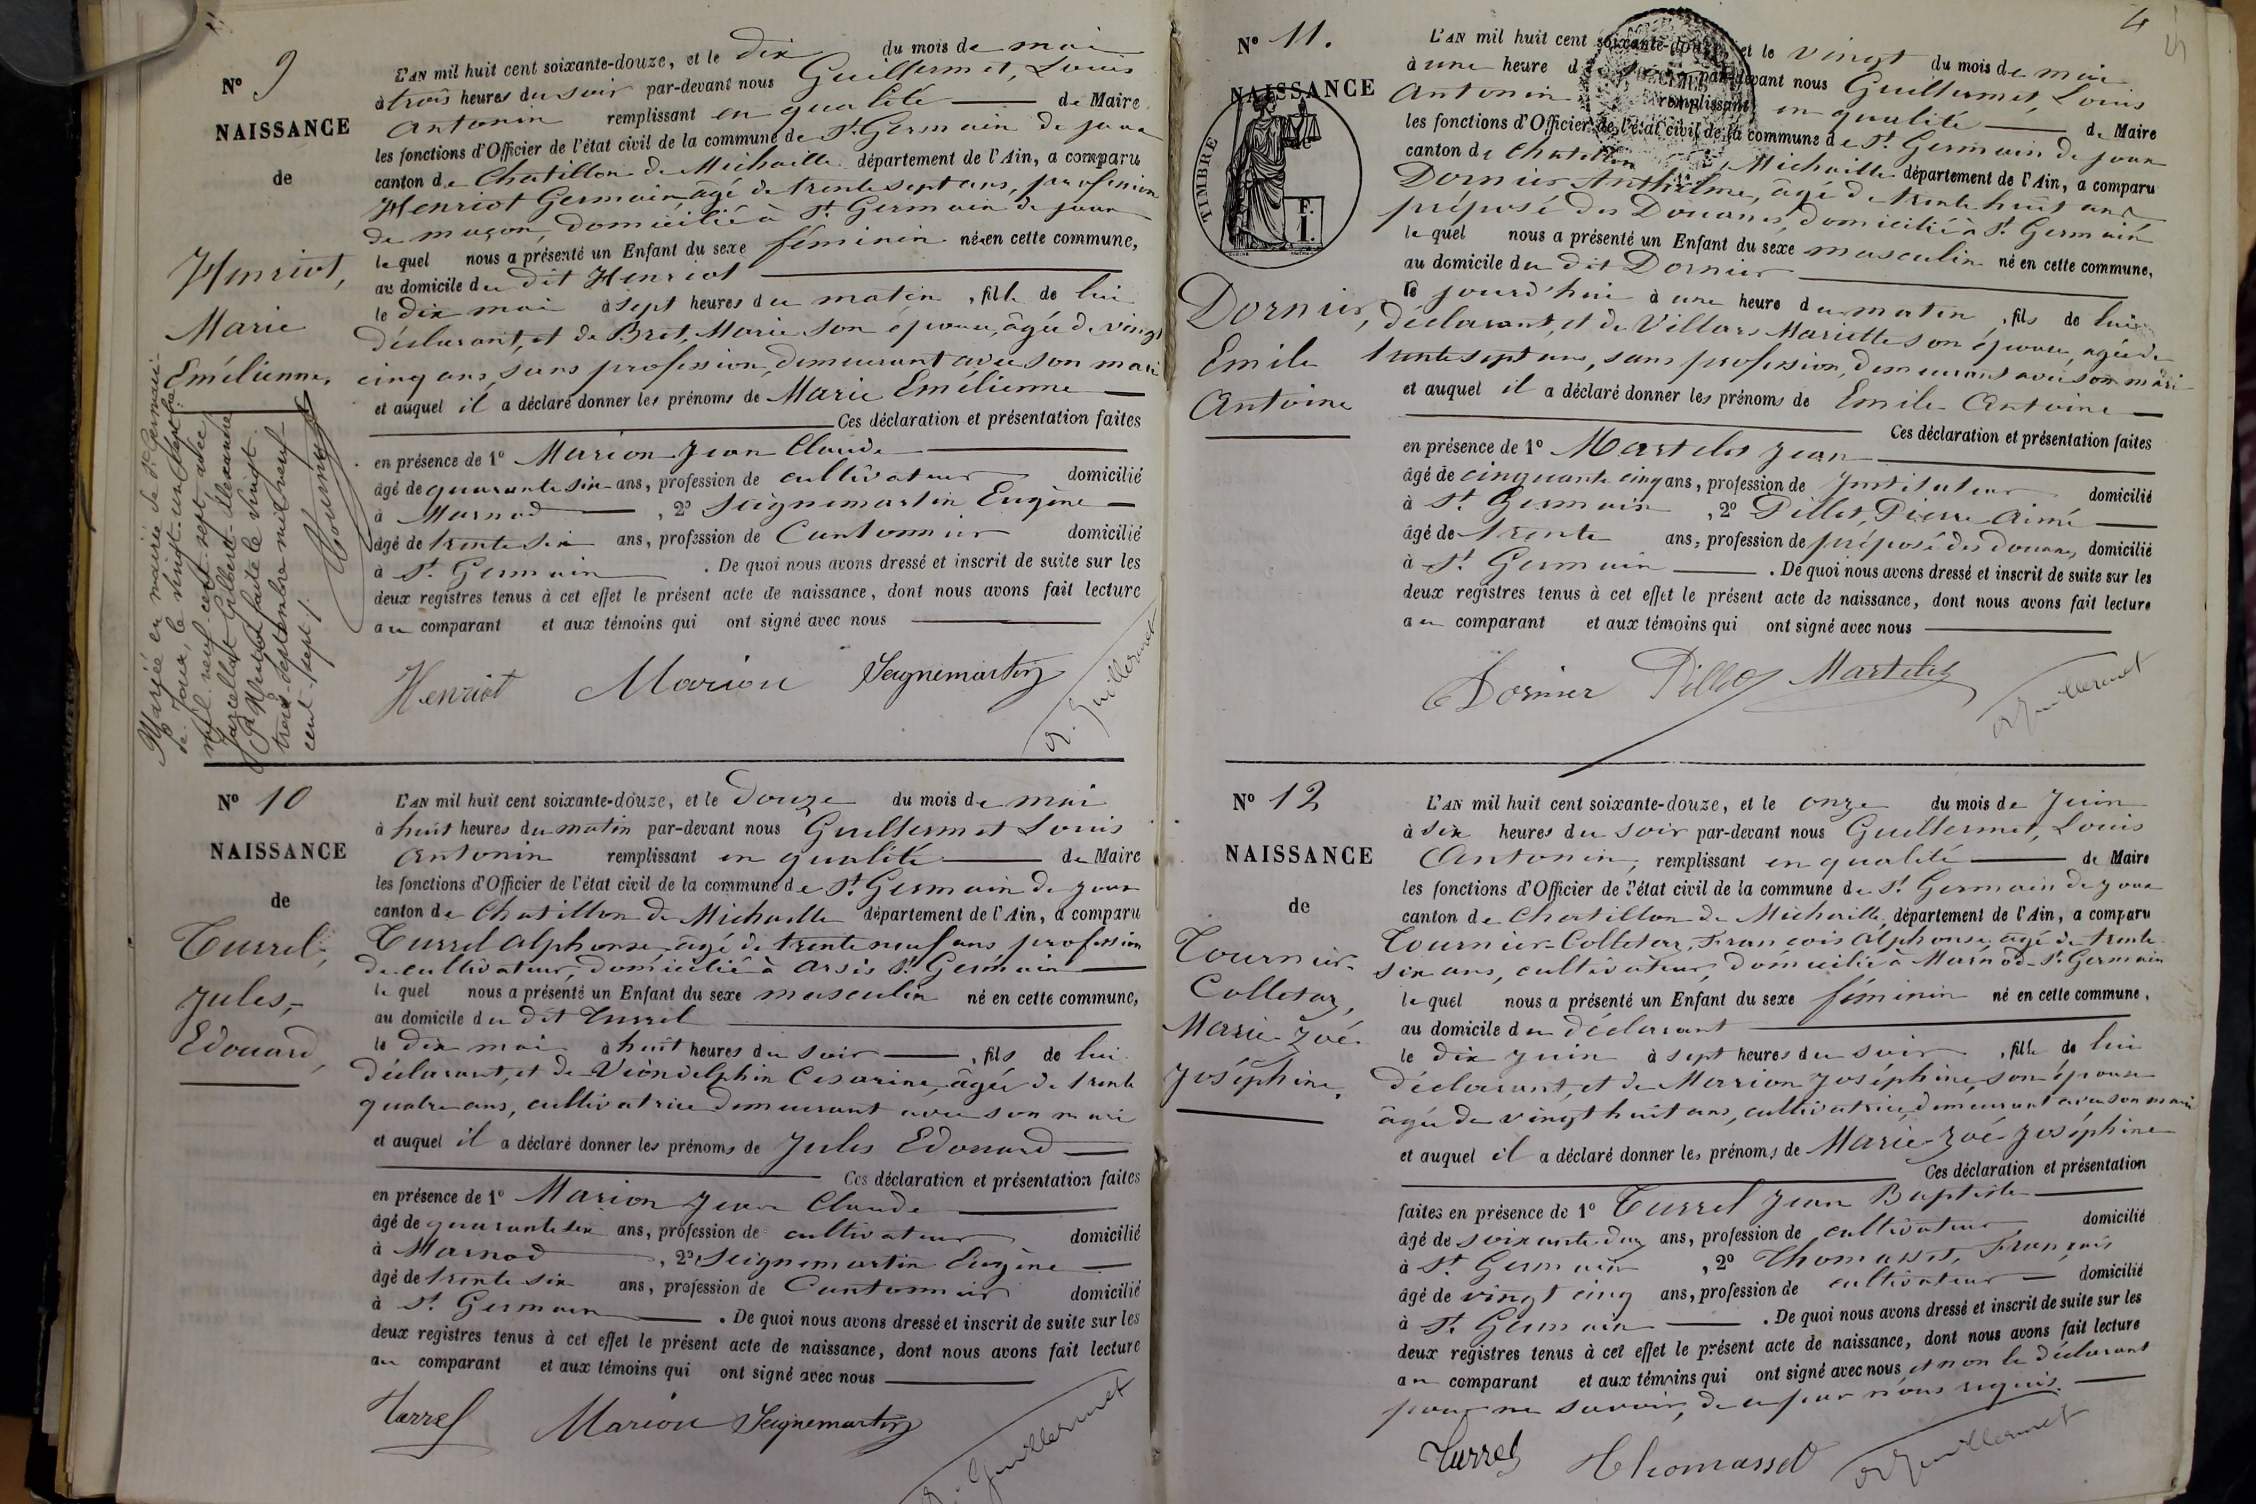 Nº 9
NAISSANCE
de
Henriot,
Marie
Emélienne,
Mariée en mairie de St Germain-
de-Joux, le vingt-un sept bre
mil neuf cent sept avec
Gilbert Alexandre
faite le vingt
trois septembre mil neuf
cent sept /.
L'AN mil huit cent soixante-douze, et le dix du mois de mai
à trois heures du soir par-devant nous Guillermet, Louis
Antonin remplissant en qualité de Maire
les fonctions d'Officier de l'état civil de la commune de St Germain de joux
canton de Chatillon de Michaille département de l'Ain, a comparu
Henriot Germain âgé de trente sept ans, profession
de maçon, domicilié à St Germain de joux
lequel nous a présenté un Enfant du sexe féminin née en cette commune,
au domicile du dit Henriot
le dix mai à sept heures du matin, fille de lui
déclarant, et de Brot, Marie son épouse, âgée de vingt
cinq ans, sans profession, demeurant avec son mari
et auquel il a déclaré donner les prénoms de Marie Emélienne
Ces déclaration et présentation faites
en présence de 1º Marion Jean Claude
âgé de quarante six ans, profession de cultivateur domicilié
à Marnod, 2º Seignemartin Eugène
âgé de trente six ans, profession de Cantonnier domicilié
à St Germain. De quoi nous avons dressé et inscrit de suite sur les
deux registres tenus à cet effet le présent acte de naissance, dont nous avons fait lecture
au comparant et aux témoins qui ont signé avec nous
Henriot Marion Seignemartin
A. Guillermet
Nº 10
NAISSANCE
de
Turrel,
Jules,
Edouard,
L'AN mil huit cent soixante-douze, et le Douze du mois de mai
à huit heures du matin par-devant nous Guillermet Louis
Antonin remplissant en qualité de Maire
les fonctions d'Officier de l'état civil de la commune de St Germain de joux
canton de Chatillon de Michaille département de l'Ain, a comparu
Turrel Alphonse, âgé de trente neuf ans profession
de cultivateur, domicilié à Arsis St Germain
lequel nous a présenté un Enfant du sexe masculin né en cette commune,
au domicile du dit Turrel
le dix mai à huit heures du soir, fils de lui
déclarant, et de Viondelphin Cesarine, âgée de trente
quatre ans, cultivatrice demeurant avec son mari
et auquel il a déclaré donner les prénoms de Jules Edouard
Ces déclaration et présentation faites
en présence de 1º Marion Jean Claude
âgé de quarante six ans, profession de cultivateur domicilié
à Marnod, 2º Seignemartin Eugène
âgé de trente six ans, profession de Cantonnier domicilié
à St Germain. De quoi nous avons dressé et inscrit de suite sur les
deux registres tenus à cet effet le présent acte de naissance, dont nous avons fait lecture
au comparant et aux témoins qui ont signé avec nous
Turrel Marion Seignemartin
A. Guillermet
4
Nº 11.
NAISSANCE
de
TIMBRE
F.
1.
Dornier,
Emile
Antoine
L'AN mil huit cent soixante-douze, et le vingt du mois de mai
à une heure du soir par-devant nous Guillermet, Louis
Antonin remplissant en qualité de Maire
les fonctions d'Officier de l'état civil de la commune de St Germain de joux
canton de Chatillon de Michaille département de l'Ain, a comparu
Dornier Anthelme, âgé de trente huit ans
préposé des Douanes, domicilié à St Germain
lequel nous a présenté un Enfant du sexe masculin né en cette commune,
au domicile du dit Dornier
le jourd'hui à une heure du matin, fils de lui
déclarant, et de Villars Mariette son épouse, agée de
trente sept ans, sans profession, demeurant avec son mari
et auquel il a déclaré donner les prénoms de Emile Antoine
Ces déclaration et présentation faites
en présence de 1º Martelet Jean
âgé de cinquante cinq ans, profession de Instituteur domicilié
à St Germain, 2º Pillet, Pierre Aimé
âgé de trente ans, profession de préposé des douanes, domicilié
à St Germain. De quoi nous avons dressé et inscrit de suite sur les
deux registres tenus à cet effet le présent acte de naissance, dont nous avons fait lecture
au comparant et aux témoins qui ont signé avec nous
Dornier Pillet Martelet
A. Guillermet
Nº 12
NAISSANCE
de
Tournier-
Colletaz,
Marie-Zoé-
Joséphine,
L'AN mil huit cent soixante-douze, et le onze du mois de Juin
à six heures du soir par-devant nous Guillermet, Louis
Antonin, remplissant en qualité de Maire
les fonctions d'Officier de l'état civil de la commune de St Germain de joux
canton de Chatillon de Michaille département de l'Ain, a comparu
Tournier-Colletaz, François Alphonse, agé de trente
six ans, cultivateur, domicilié à Marnod-St Germain
lequel nous a présenté un Enfant du sexe féminin né en cette commune,
au domicile du déclarant
le dix Juin à sept heures du soir, fille de lui
déclarant, et de Marion Joséphine, son épouse
âgée de vingt huit ans, cultivatrice, demeurant avec son mari
et auquel il a déclaré donner les prénoms de Marie-Zoé-Joséphine
Ces déclaration et présentation
faites en présence de 1º Turrel Jean Baptiste
âgé de soixante dix ans, profession de cultivateur domicilié
à St Germain, 2º Thomasset, François
âgé de vingt cinq ans, profession de cultivateur domicilié
à St Germain. De quoi nous avons dressé et inscrit de suite sur les
deux registres tenus à cet effet le présent acte de naissance, dont nous avons fait lecture
au comparant et aux témoins qui ont signé avec nous et non le déclarant
pour ne savoir, de ce par nous requis.
Turrel Thomasset A Guillermet